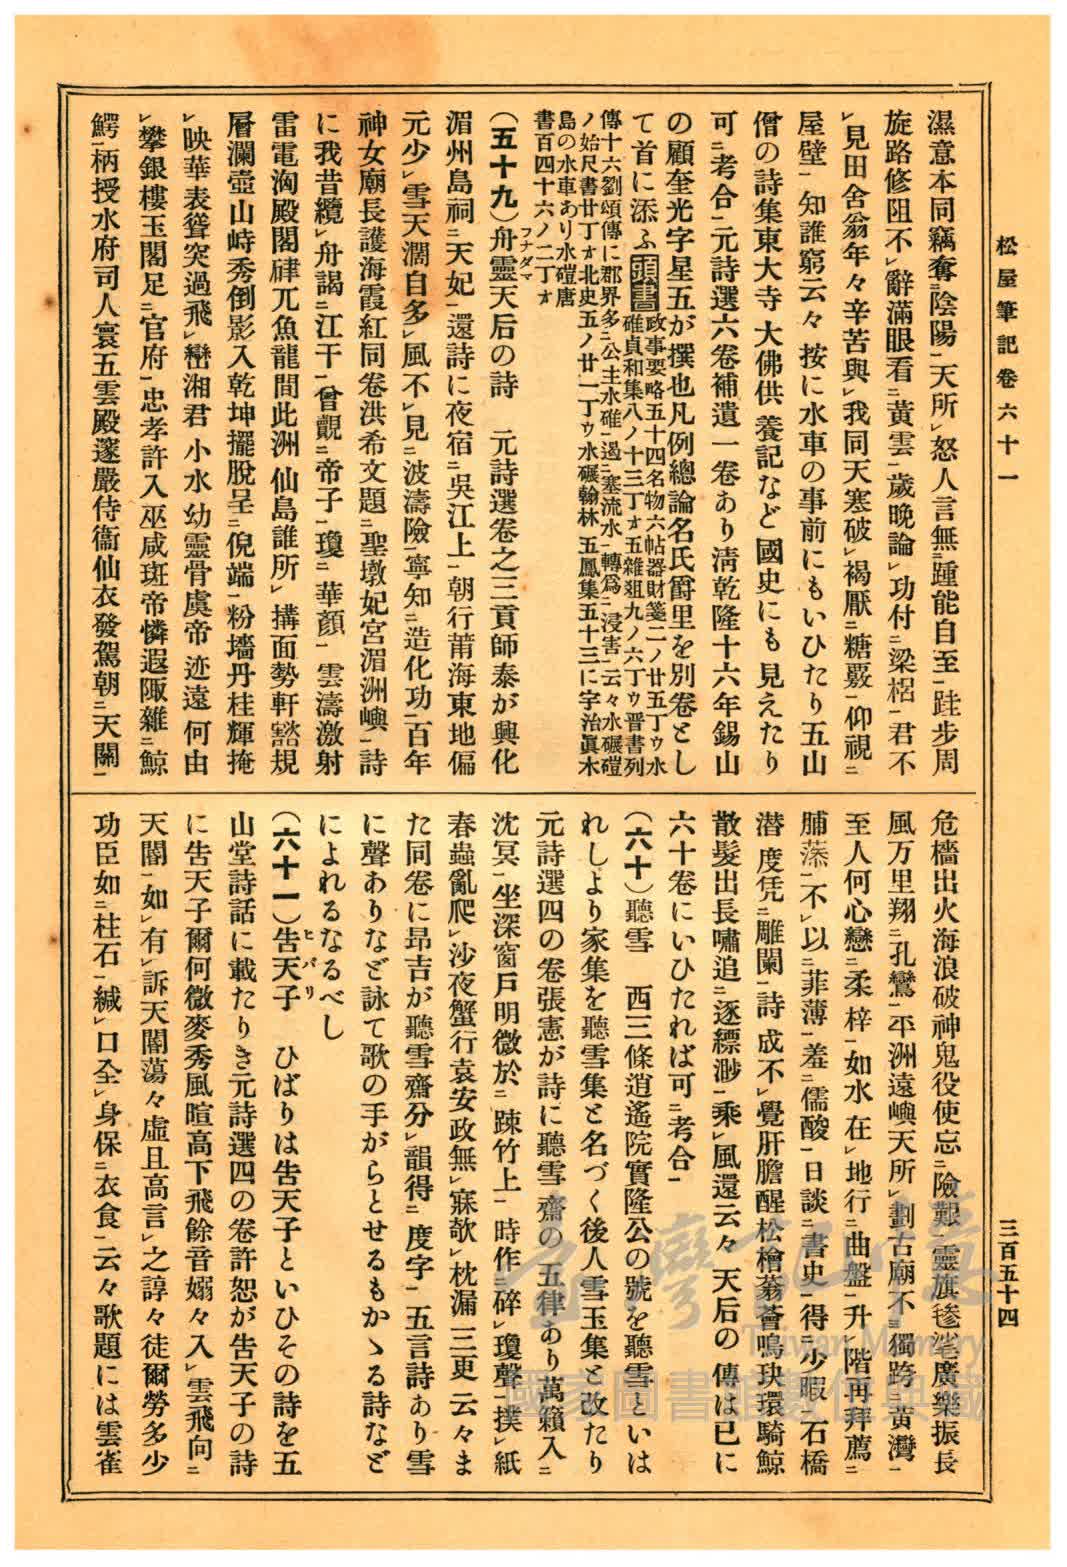 松屋筆記卷六十一
三百五十四
濕意本同竊奪㆓陰陽㆒天所㆑怒人言無㆓踵能自至㆒跬步周
旋路修阻不㆑辭滿眼看㆓黃雲㆒歲晩論㆑功付㆓梁梠㆒君不
㆑見田舍翁年々辛苦與㆑我同天寒破㆑褐厭㆓糖覈㆒仰視㆓
屋壁㆒知誰窮云々按に水車の事前にもいひたり五山
僧の詩集東大寺大佛供養記など國史にも見えたり
可㆓考合㆒元詩選六卷補遺一卷あり淸乾隆十六年錫山
の顧奎光字星五が撰也凡例總論名氏爵里を別卷とし
て首に添ふ頭書政事要略五十四名物六帖器財箋二ノ廿五丁ウ水
碓貞和集八ノ十三丁オ五雜俎九ノ六丁ウ晋書列
傳十六劉頌傳に郡界多㆓公主水碓㆒遏㆓塞流水㆒轉爲㆓浸害㆒云々水碾磑
ノ始尺書廿丁オ北史五ノ廿一丁ウ水碾翰林五鳳集五十三に宇治眞木
島の水車あり水磑唐
書百四十六ノ二丁オ
（五十九）舟靈フナダマ天后の詩　元詩選卷之三貢師泰が興化
湄州島祠㆓天妃㆒還詩に夜宿㆓吳江上㆒朝行莆海東地偏
元少㆑雪天濶自多㆑風不㆑見㆓波濤險㆒寧知㆓造化功㆓百年
神女廟長護海霞紅同卷洪希文題㆓聖墩妃宮湄洲嶼㆒詩
に我昔纜㆑舟謁㆓江干㆒曾觀㆓帝子㆒瓊㆓華顏㆒雲濤激射
雷電洶殿閣硉兀魚龍間此洲仙島誰所㆑搆面勢軒豁規
層瀾壺山峙秀倒影入乾坤擺脫呈㆓倪端㆒粉墻丹桂輝掩
㆑映華表聳突過飛㆑巒湘君小水幼靈骨虞帝迹遠何由
㆑攀銀樓玉閣足㆓官府㆒忠孝許入巫咸班帝憐遐陬雜㆓鯨
鰐㆒柄授水府司人寰五雲殿邃嚴侍衞仙衣發駕朝㆓天關㆒
危檣出火海浪破神鬼役使忘㆓險艱㆒靈旗毿毟廣樂振長
風万里翔㆓孔鸞㆒平洲遠嶼天所㆑劃古廟不㆓獨跨㆓黃灣㆒
至人何心戀㆓柔梓㆒如水在㆑地行㆓曲盤㆒升㆑階再拜薦㆓
脯藻㆒不㆑以㆓菲薄㆒羞㆓儒酸㆒日談㆓書史㆒得㆓少暇㆒石橋
潛度凭㆓雕闌㆒詩成不㆑覺肝膽醒松檜蓊薈鳴玦環騎鯨
散髮出長嘯追㆓逐縹渺㆒乘㆑風還云々天后の傳は已に
六十卷にいひたれば可㆓考合㆒
（六十）聽雪　西三條逍遙院實隆公の號を聽雪といは
れしより家集を聽雪集と名づく後人雪玉集と改たり
元詩選四の卷張憲が詩に聽雪齋の五律あり萬籟入㆓
沈冥㆒坐深窗戸明微於㆓踈竹上㆒時作㆓碎㆑瓊聲㆒撲㆑紙
春蟲亂爬㆑沙夜蟹行袁安政無㆑寐欹㆑枕漏三更云々ま
た同卷に昂吉が聽雪齋分㆑韻得㆓度字㆒五言詩あり雪
に聲ありなど詠て歌の手がらとせるもかゝる詩など
によれるなるべし
（六十一）告天子ヒバリ　ひばりは告天子といひその詩を五
山堂詩話に載たりき元詩選四の卷許恕が告天子の詩
に告天子爾何微麥秀風暄高下飛餘音嫋々入㆑雲飛向㆓
天閽㆒如㆑有㆑訴天閽蕩々虛且高言㆑之諄々徒爾勞多少
功臣如㆓柱石㆒緘㆑口全㆑身保㆓衣食㆒云々歌題には雲雀
臺灣記憶
Taiwan Memory
國家圖書館數位典藏